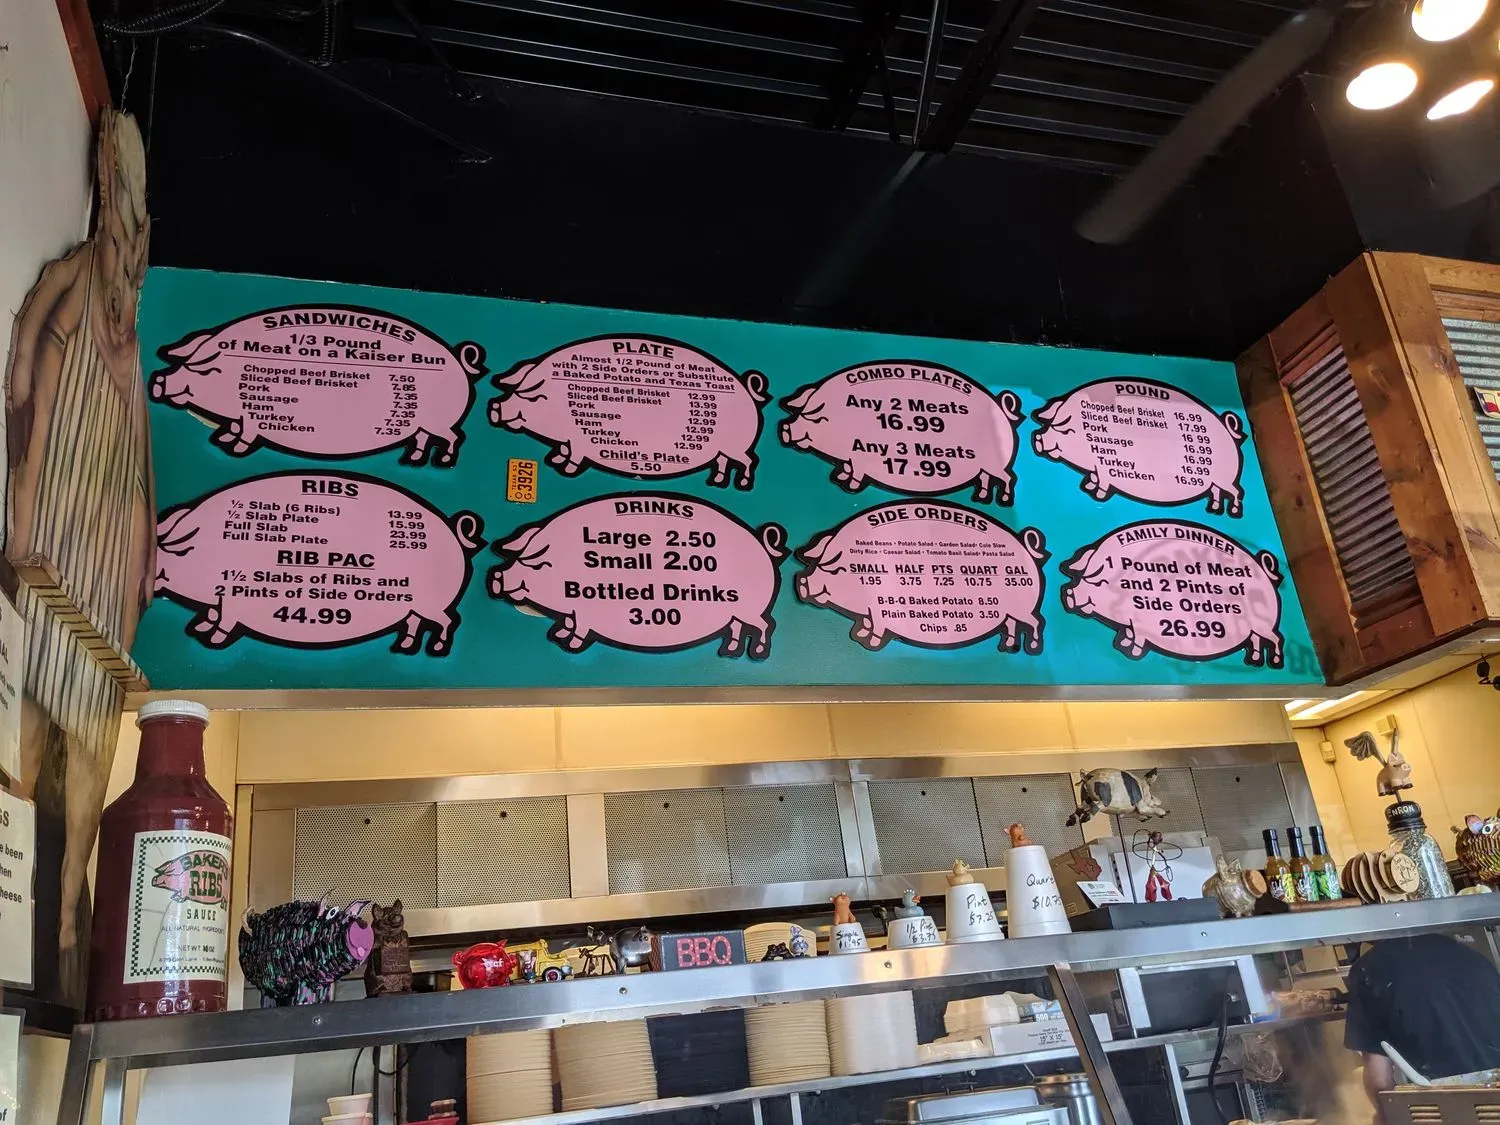 SANDWICHES
1/3 Pound
of Meat on a Kaiser Bun
Chopped Beef Brisket 7.50
Sliced Beef Brisket 7.85
Pork 7.35
Sausage 7.35
Ham 7.35
Turkey 7.35
Chicken 7.35
PLATE
Almost 1/2 Pound of Meat
with 2 Side Orders or Substitute
a Baked Potato and Texas Toast
Chopped Beef Brisket 12.99
Sliced Beef Brisket 13.99
Pork 12.99
Sausage 12.99
Ham 12.99
Turkey 12.99
Chicken 12.99
Child's Plate
5.50
COMBO PLATES
Any 2 Meats
16.99
Any 3 Meats
17.99
POUND
Chopped Beef Brisket 16.99
Sliced Beef Brisket 17.99
Pork 16.99
Sausage 16.99
Ham 16.99
Turkey 16.99
Chicken 16.99
RIBS
½ Slab (6 Ribs) 13.99
½ Slab Plate 15.99
Full Slab 23.99
Full Slab Plate 25.99
RIB PAC
1½ Slabs of Ribs and
2 Pints of Side Orders
44.99
DRINKS
Large 2.50
Small 2.00
Bottled Drinks
3.00
SIDE ORDERS
Baked Beans • Potato Salad • Garden Salad • Cole Slaw
Dirty Rice • Caesar Salad • Tomato Basil Salad • Pasta Salad
SMALL HALF PTS QUART GAL
1.95 3.75 7.25 10.75 35.00
B-B-Q Baked Potato 8.50
Plain Baked Potato 3.50
Chips .85
FAMILY DINNER
1 Pound of Meat
and 2 Pints of
Side Orders
26.99
BAKER'S
RIBS
SAUCE
ALL NATURAL INGREDIENTS
BBQ
Single
$1.95
½ Pint
$3.75
Pint
$7.25
Quart
$10.75
ENRON